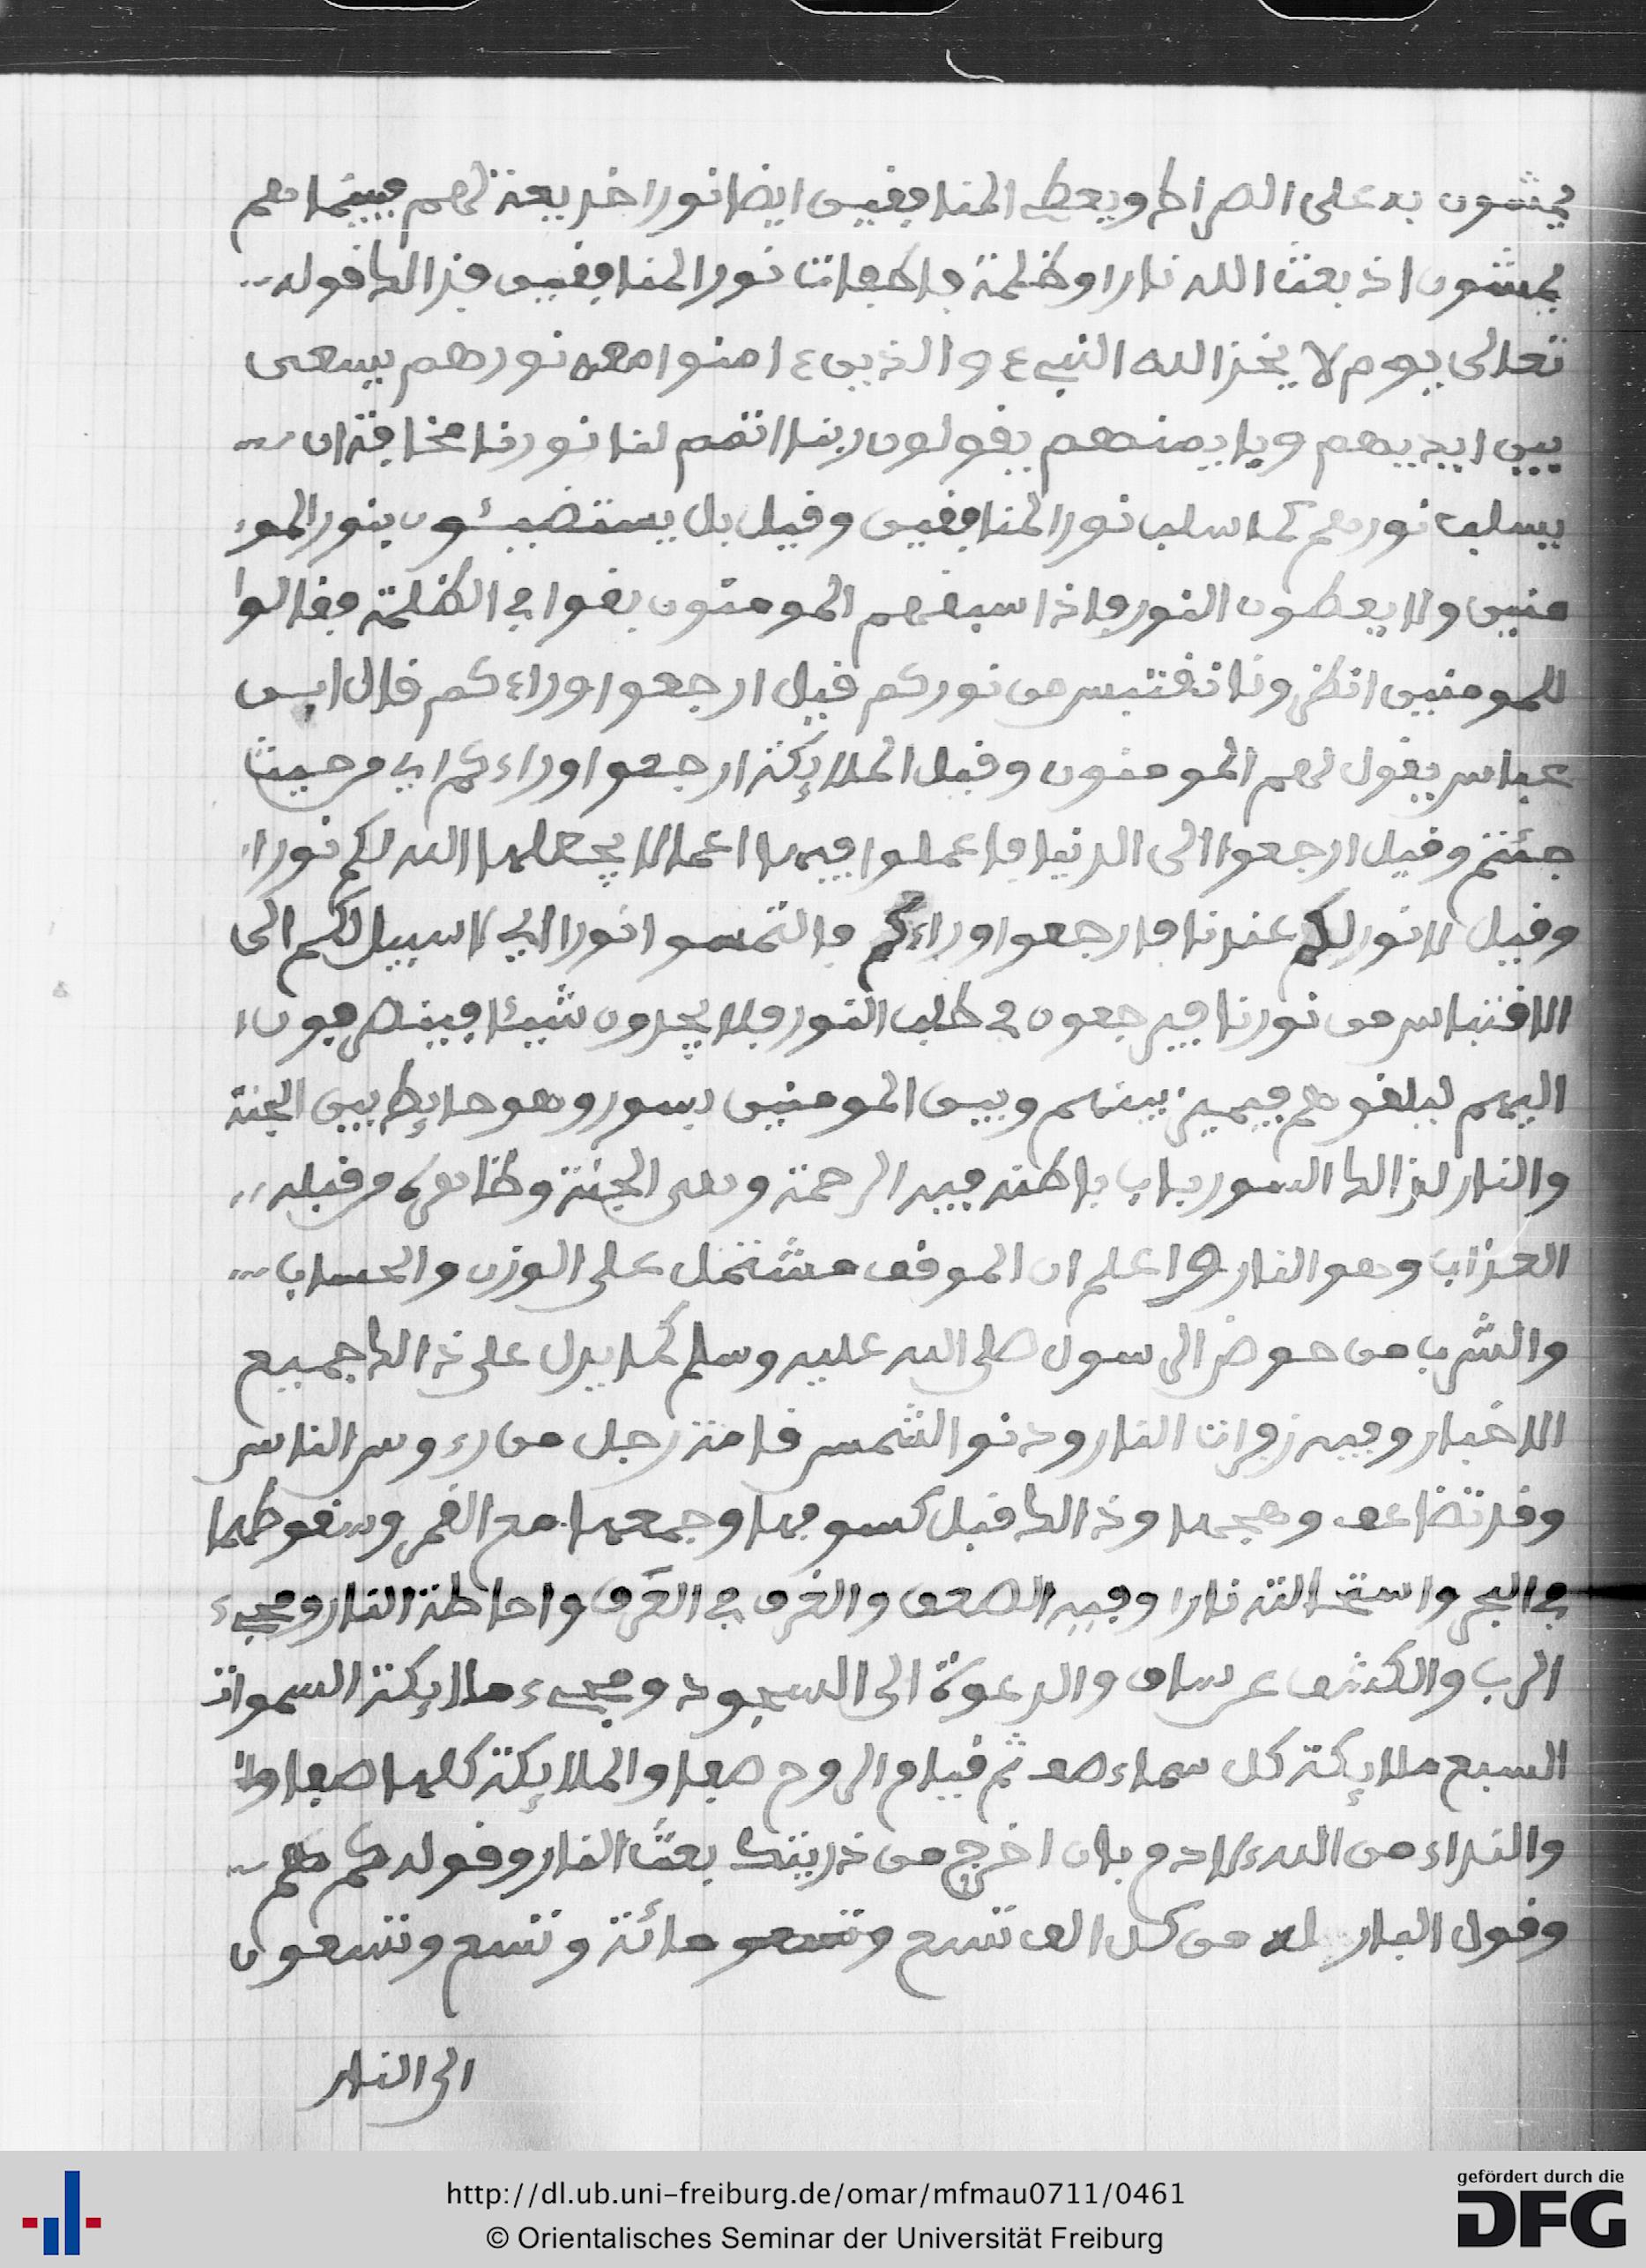 يمشون به على الصراط ويعطي المنافقين ايضا نورا خديعة لهم فبينما هم
يمشون اذ بعث الله نارا وظلمة فاطفات نور المنافقين فذالك قوله
تعالى يوم لا يخز الله النبيء والذين ءامنوا معه نورهم يسعى
بين ايديهم وبايمنهم يقولون ربنا اتمم لنا نورنا مخافة ان
يسلب نورهم كما سلب نور المنافقين وقيل بل يستضيئون بنور المو
منين ولا يعطون النور فاذا سبقهم المومنون بقوا في الظلمة فقالوا
للمومنين انظرونا نقتبس من نوركم قيل ارجعوا وراءكم قال ابن
عباس يقول لهم المومنون وقيل الملايكة ارجعوا وراءكم اي من حيث
جئتم وقيل ارجعوا الى الدنيا فاعملوا فيها اعمالا يجعلها الله لكم نورا
وقيل لا نور لكم عندنا فارجعوا وراءكم فالتمسوا نورا اي لا سبيل لكم الى
الاقتباس من نورنا فيرجعون في طلب النور فلا يجدون شيئا فينصرفون
اليهم ليلقوهم فيميز بينهم وبين المومنين بسور وهو حايط بين الجنة
والنار لذالك السور باب باطنه فيه الرحمة وهى الجنة وظاهره من قبله
العذاب وهو النار واعلم ان الموقف مشتمل على الوزن والحساب
والشرب من حوض الرسول صلى الله عليه وسلم كما يدل على ذالك جميع
الاخبار وفيه زفرات النار ودنو الشمس قامة رجل من رءوس الناس
وقد تضاعف وهجها وذالك قبل كسوفها وجمعها مع القمر وسقوطها
في البحر واستحالته نارا وفيه الصعق والغرق في العرق واحاطة النار ومجيء
الرب والكشف عن ساق والدعوة الى السجود ومجيء ملايكة السموات
السبع ملايكة كل سماء صف ثم قيام الروح صفا والملايكة كلها صفا
والنداء من الله لادم بان اخرج من ذريتك بعث النار وقوله كم كم
وقول البار له من كل الف تسع مائة وتسع وتسعون
الى النار
http://dl.ub.uni-freiburg.de/omar/mfmau0711/0461
© Orientalisches Seminar der Universität Freiburg
gefördert durch die
DFG